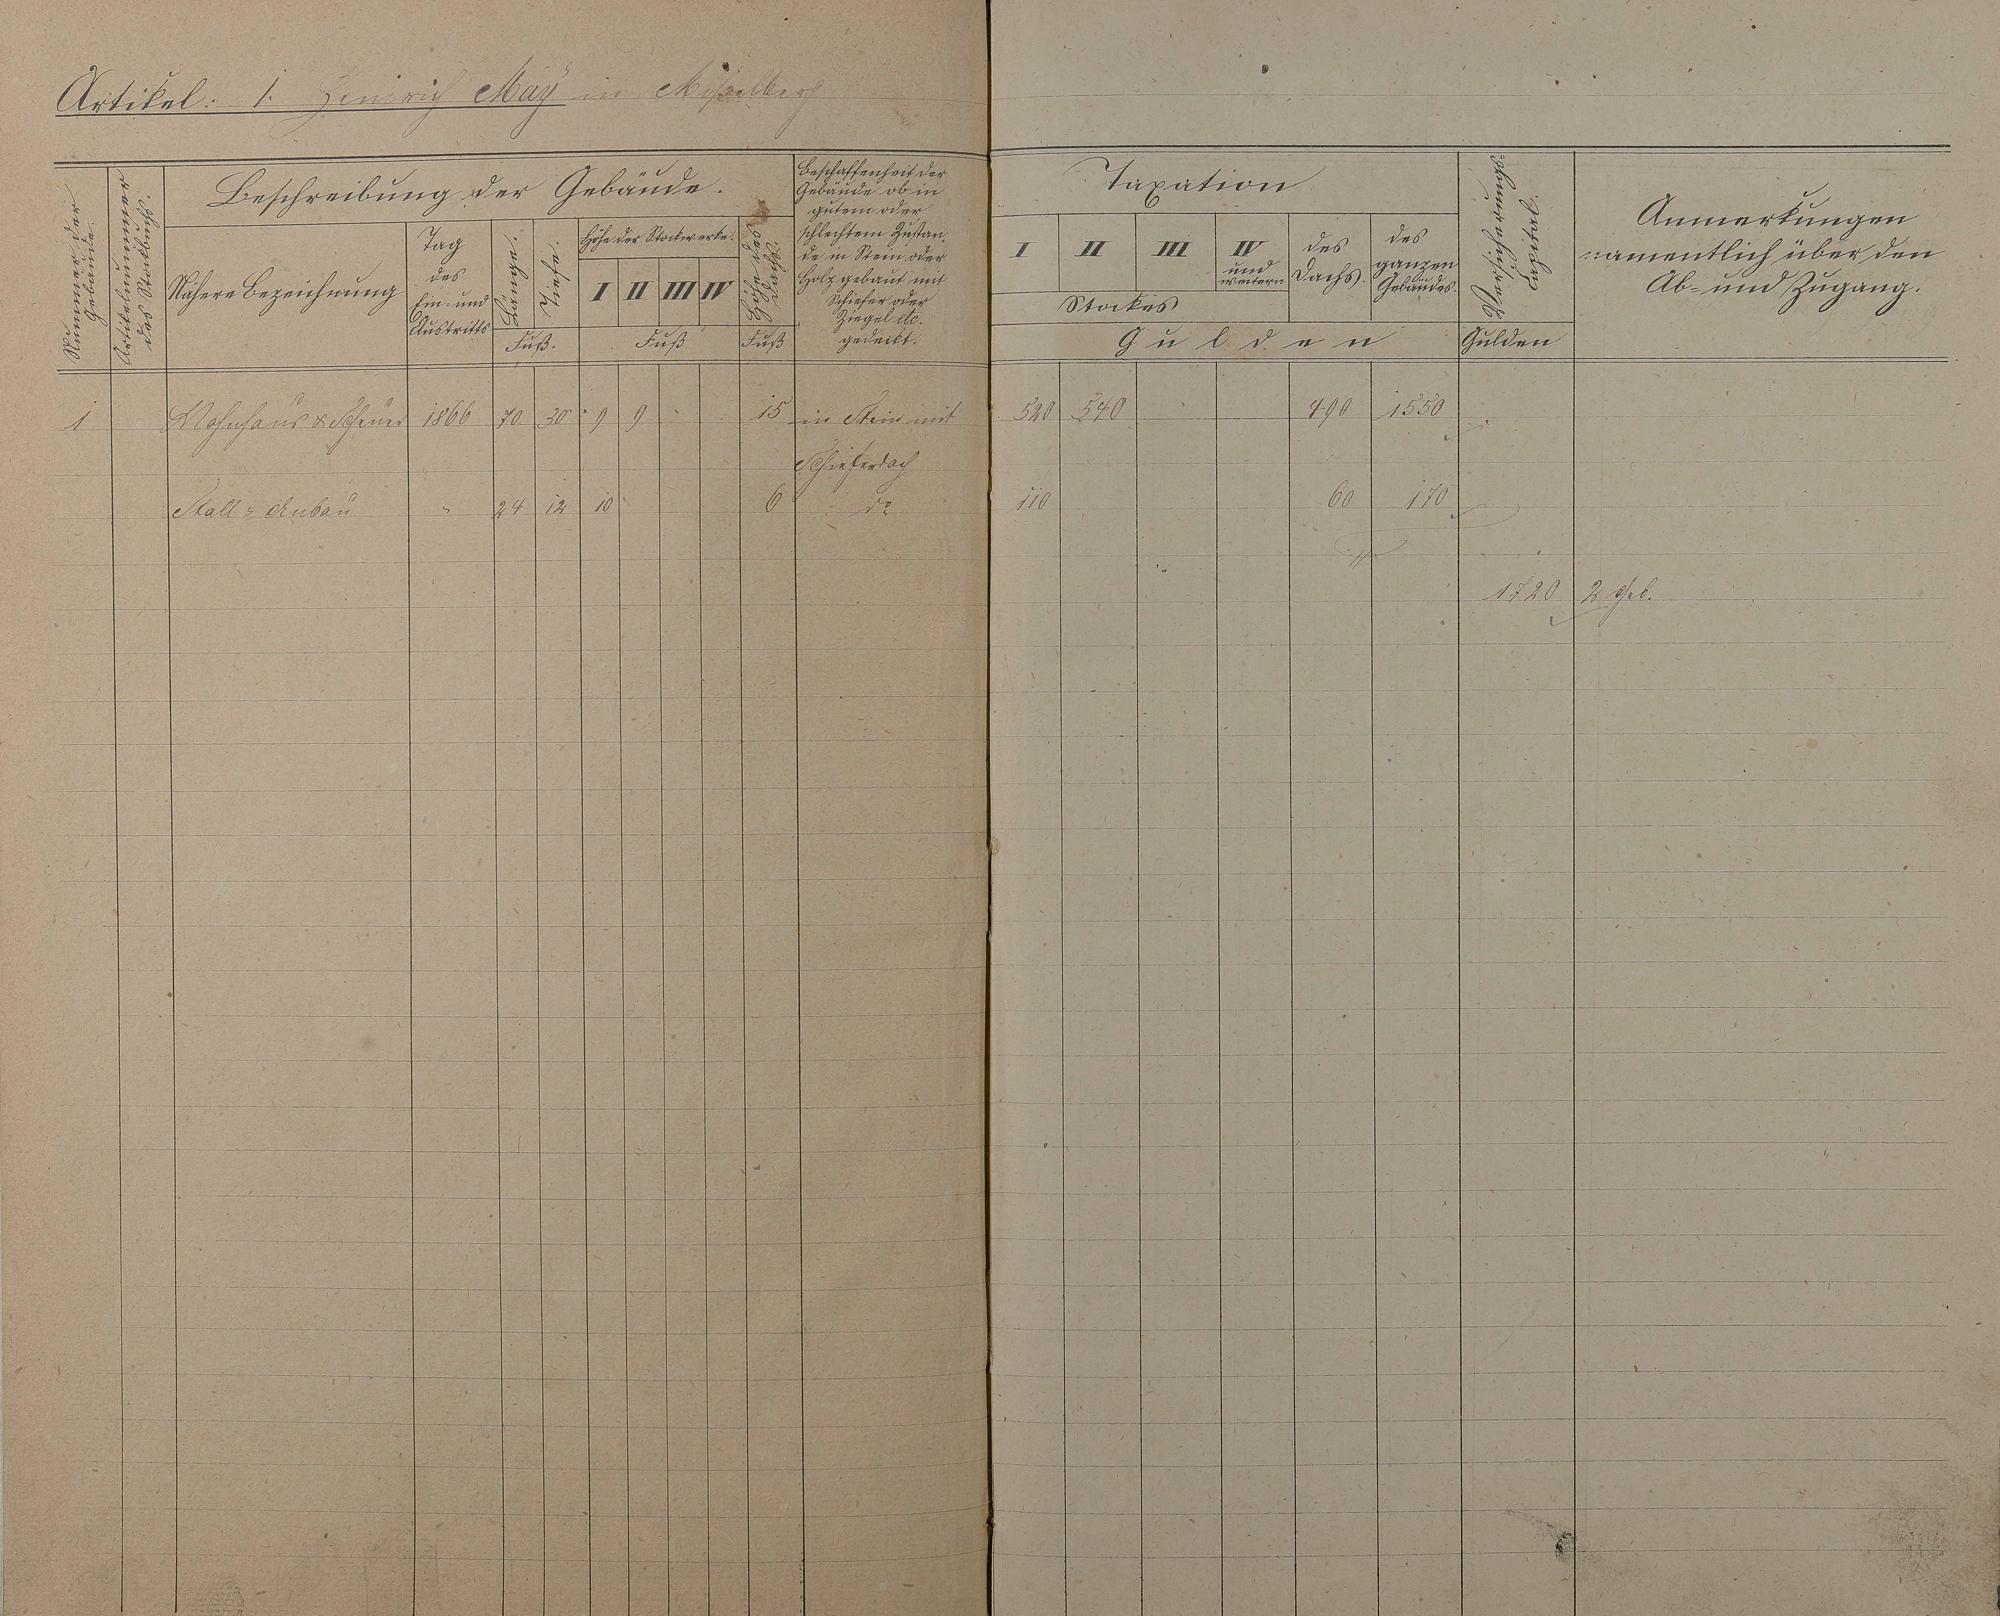 Artikel: 1. Heinrich May in Misselberg
Nummer der Gebäude.
Artikelnummer des Stockbuchs.
Beschreibung der Gebäude.
Nähere Bezeichnung
Tag
des
Ein- und
Austritts
Länge.
Tiefe.
Fuß.
Höhe der Stockwerke.
I II III IV
Fuß
Höhe des Dachs.
Fuß
Beschaffenheit der
Gebäude ob in
gutem oder
schlechtem Zustan-
de in Stein oder
Holz gebaut mit
Schiefer oder
Ziegel etc.
gedeckt.
Taxation
I II III IV
und
weitern
Stockes
des
Dachs.
des
ganzen
Gebäudes.
Gulden
Versicherungs-
capital.
Gulden
Anmerkungen
namentlich über den
Ab- und Zugang.
1 Wohnhaus & Scheuer 1866 70 30 9 9 15 in Stein mit 520 540 490 1550
Schieferdach
Stall = Anbau " 24 12 10 6 do 110 60 170
1720 2 Geb.